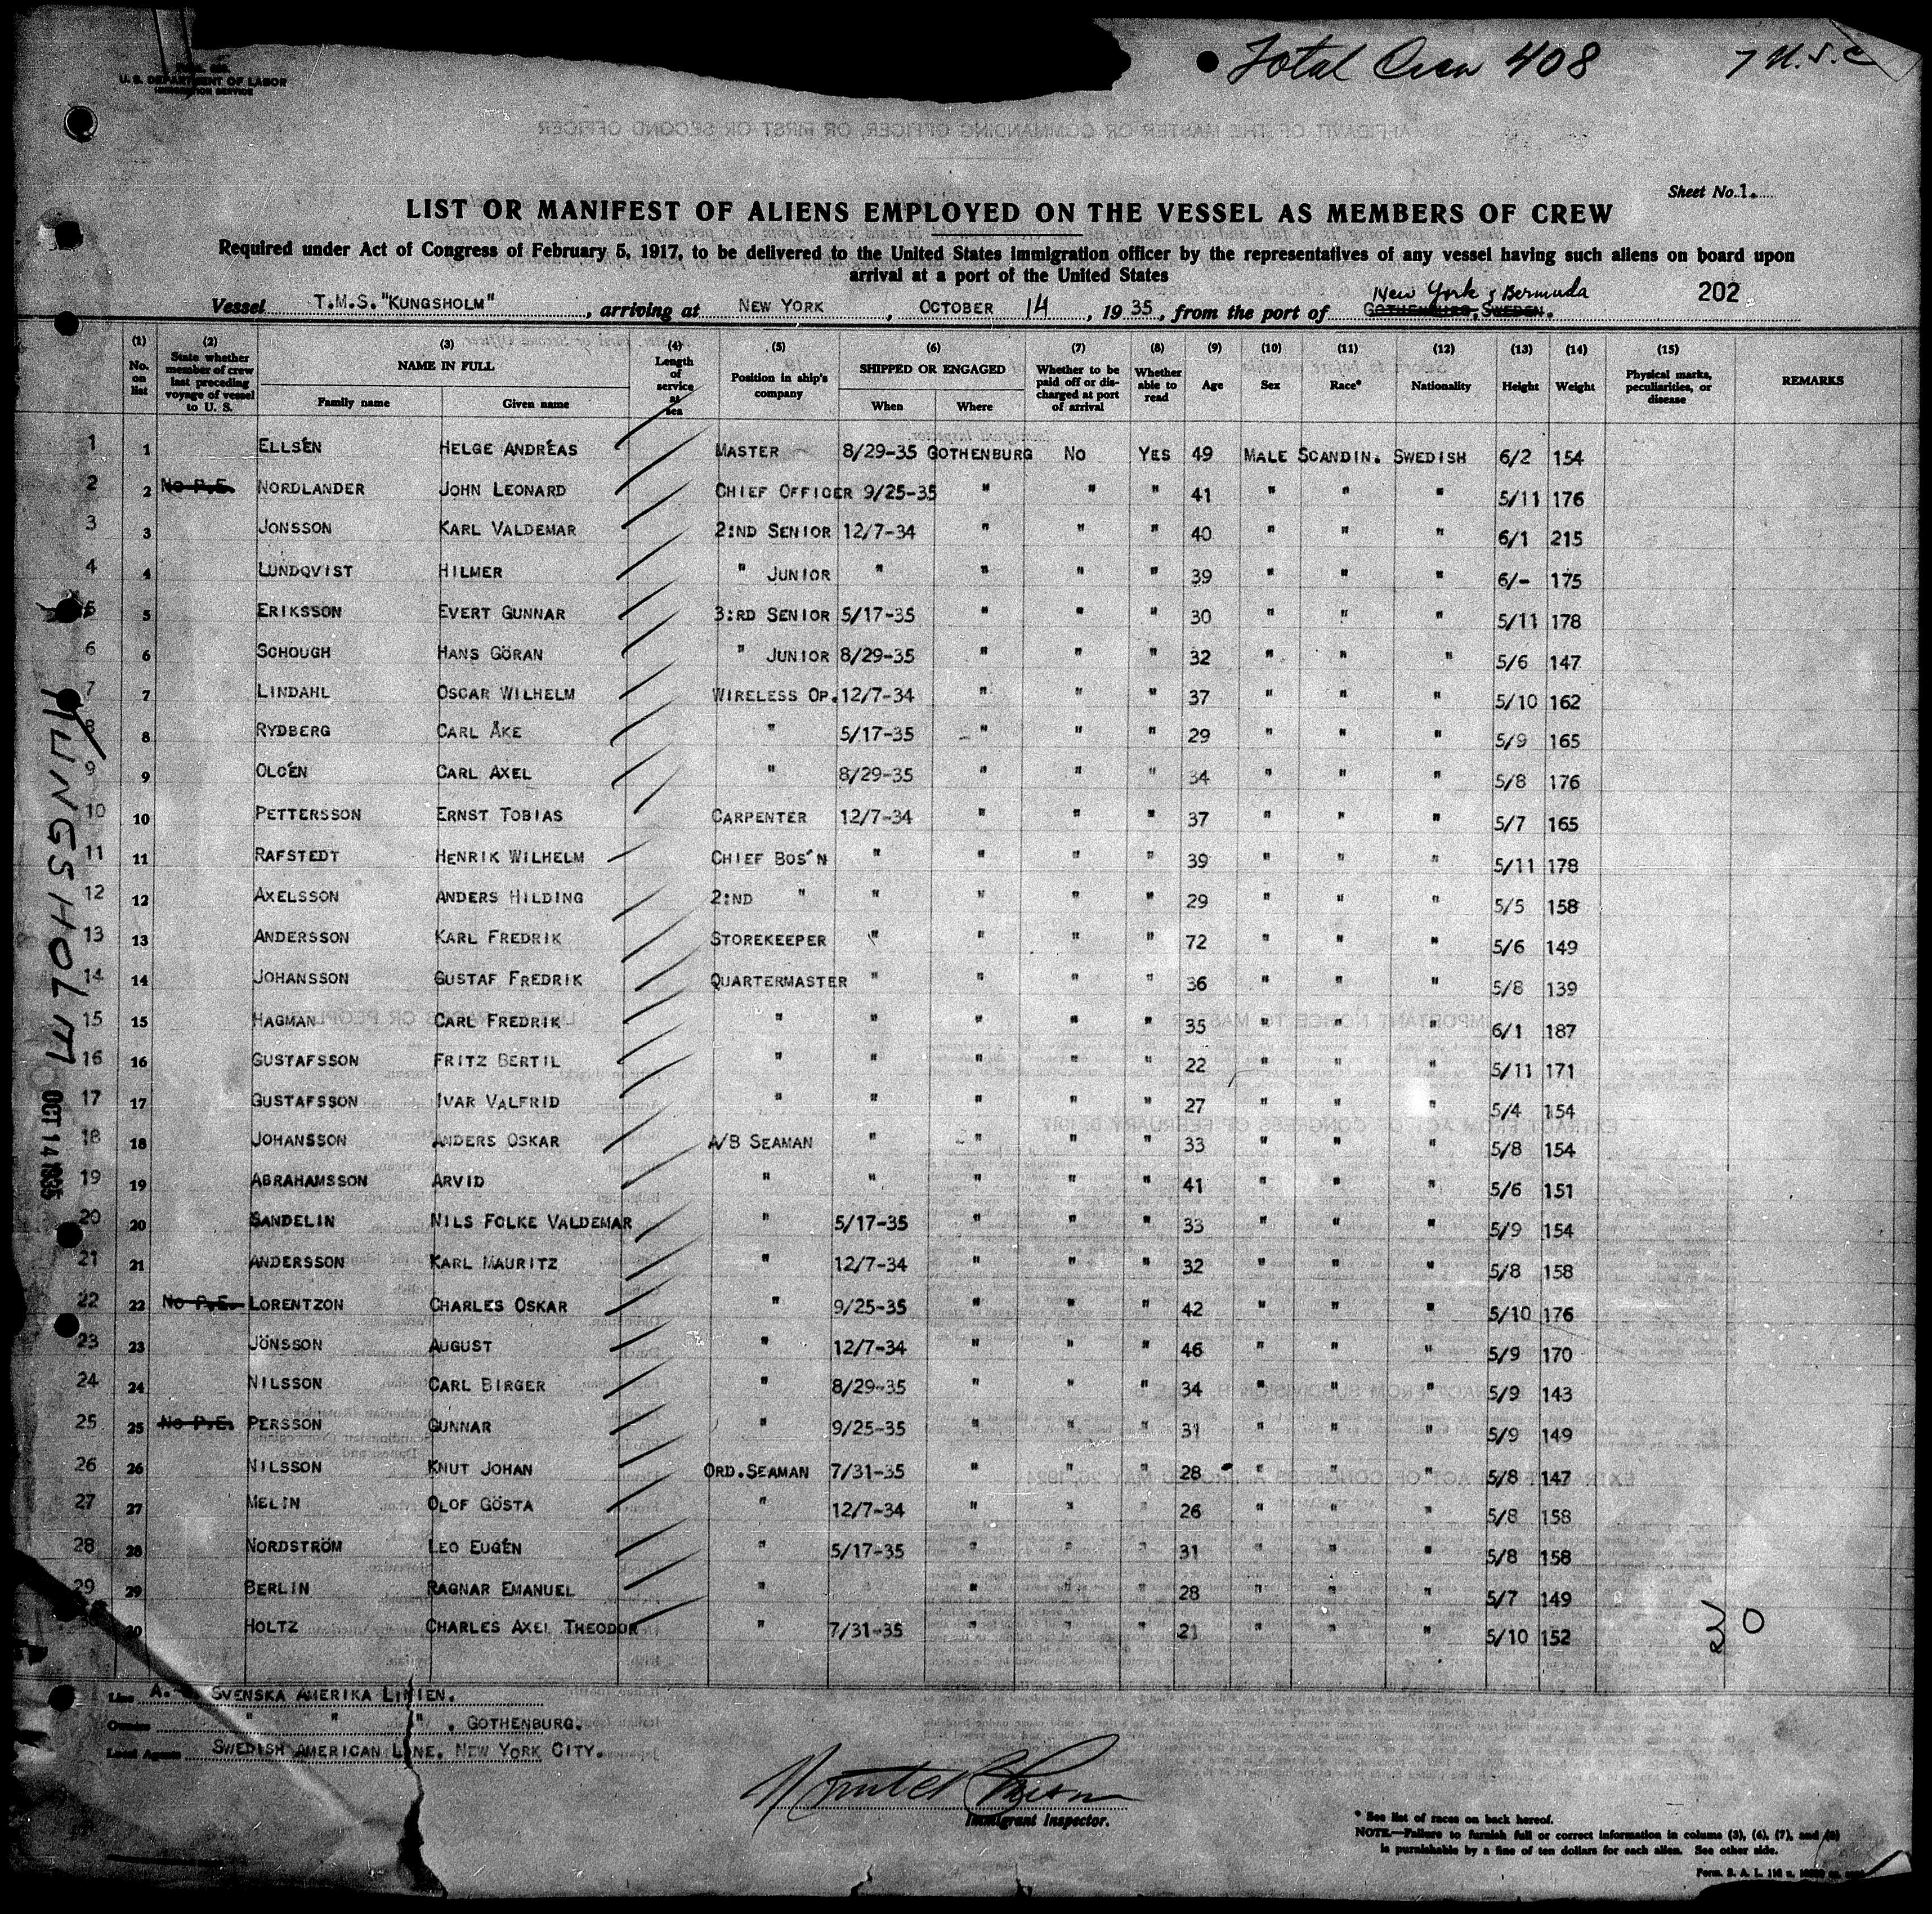 Total Crew 408
7 U.S.C
U. S. DEPARTMENT OF LABOR
IMMIGRATION SERVICE
Sheet No. 1.
LIST OR MANIFEST OF ALIENS EMPLOYED ON THE VESSEL AS MEMBERS OF CREW
Required under Act of Congress of February 5, 1917, to be delivered to the United States immigration officer by the representatives of any vessel having such aliens on board upon
arrival at a port of the United States
New York & Bermuda
202
Vessel T.M.S. "KUNGSHOLM", arriving at NEW YORK, OCTOBER 14, 1935, from the port of GOTHENBURG, SWEDEN.
(1) No. on list (2) State whether member of crew last preceding voyage of vessel to U. S. (3) NAME IN FULL Family name Given name (4) Length of service at sea (5) Position in ship's company (6) SHIPPED OR ENGAGED When Where (7) Whether to be paid off or discharged at port of arrival (8) Whether able to read (9) Age (10) Sex (11) Race* (12) Nationality (13) Height (14) Weight (15) Physical marks, peculiarities, or disease REMARKS
1 1 ELLSÉN HELGE ANDRÉAS MASTER 8/29-35 GOTHENBURG NO YES 49 MALE SCANDIN. SWEDISH 6/2 154
2 2 No P.E. NORDLANDER JOHN LEONARD CHIEF OFFICER 9/25-35 " " " 41 " " " 5/11 176
3 3 JONSSON KARL VALDEMAR 2:ND SENIOR 12/7-34 " " " 40 " " " 6/1 215
4 4 LUNDQVIST HILMER " JUNIOR " " " " 39 " " " 6/- 175
5 5 ERIKSSON EVERT GUNNAR 3:RD SENIOR 5/17-35 " " " 30 " " " 5/11 178
6 6 SCHOUGH HANS GÖRAN " JUNIOR 8/29-35 " " " 32 " " " 5/6 147
7 7 LINDAHL OSCAR WILHELM WIRELESS OP. 12/7-34 " " " 37 " " " 5/10 162
8 8 RYDBERG CARL ÅKE " 5/17-35 " " " 29 " " " 5/9 165
9 9 OLCÉN CARL AXEL " 8/29-35 " " " 34 " " " 5/8 176
10 10 PETTERSSON ERNST TOBIAS CARPENTER 12/7-34 " " " 37 " " " 5/7 165
11 11 RAFSTEDT HENRIK WILHELM CHIEF BOS'N " " " " 39 " " " 5/11 178
12 12 AXELSSON ANDERS HILDING 2:ND " " " " " 29 " " " 5/5 158
13 13 ANDERSSON KARL FREDRIK STOREKEEPER " " " " 72 " " " 5/6 149
14 14 JOHANSSON GUSTAF FREDRIK QUARTERMASTER " " " " 36 " " " 5/8 139
15 15 HAGMAN CARL FREDRIK " " " " " 35 " " " 6/1 187
16 16 GUSTAFSSON FRITZ BERTIL " " " " " 22 " " " 5/11 171
17 17 GUSTAFSSON IVAR VALFRID " " " " " 27 " " " 5/4 154
18 18 JOHANSSON ANDERS OSKAR A/B SEAMAN " " " " 33 " " " 5/8 154
19 19 ABRAHAMSSON ARVID " " " " " 41 " " " 5/6 151
20 20 SANDELIN NILS FOLKE VALDEMAR " 5/17-35 " " " 33 " " " 5/9 154
21 21 ANDERSSON KARL MAURITZ " 12/7-34 " " " 32 " " " 5/8 158
22 22 No P.E. LORENTZON CHARLES OSKAR " 9/25-35 " " " 42 " " " 5/10 176
23 23 JÖNSSON AUGUST " 12/7-34 " " " 46 " " " 5/9 170
24 24 NILSSON CARL BIRGER " 8/29-35 " " " 34 " " " 5/9 143
25 25 No P.E. PERSSON GUNNAR " 9/25-35 " " " 31 " " " 5/9 149
26 26 NILSSON KNUT JOHAN ORD.SEAMAN 7/31-35 " " " 28 " " " 5/8 147
27 27 MELIN OLOF GÖSTA " 12/7-34 " " " 26 " " " 5/8 158
28 28 NORDSTRÖM LEO EUGÉN " 5/17-35 " " " 31 " " " 5/8 158
29 29 BERLIN RAGNAR EMANUEL " " " " 28 " " " 5/7 149
30 HOLTZ CHARLES AXEL THEODOR " 7/31-35 " " " 21 " " " 5/10 152
KUNGSHOLM
OCT 14 1935
Line A. SVENSKA AMERIKA LINIEN.
Owners " " ", GOTHENBURG.
Local Agents SWEDISH AMERICAN LINE. NEW YORK CITY.
Immigrant Inspector.
* See list of races on back hereof.
NOTE.—Failure to furnish full or correct information in columns (3), (6), (7), and (8)
is punishable by a fine of ten dollars for each alien. See other side.